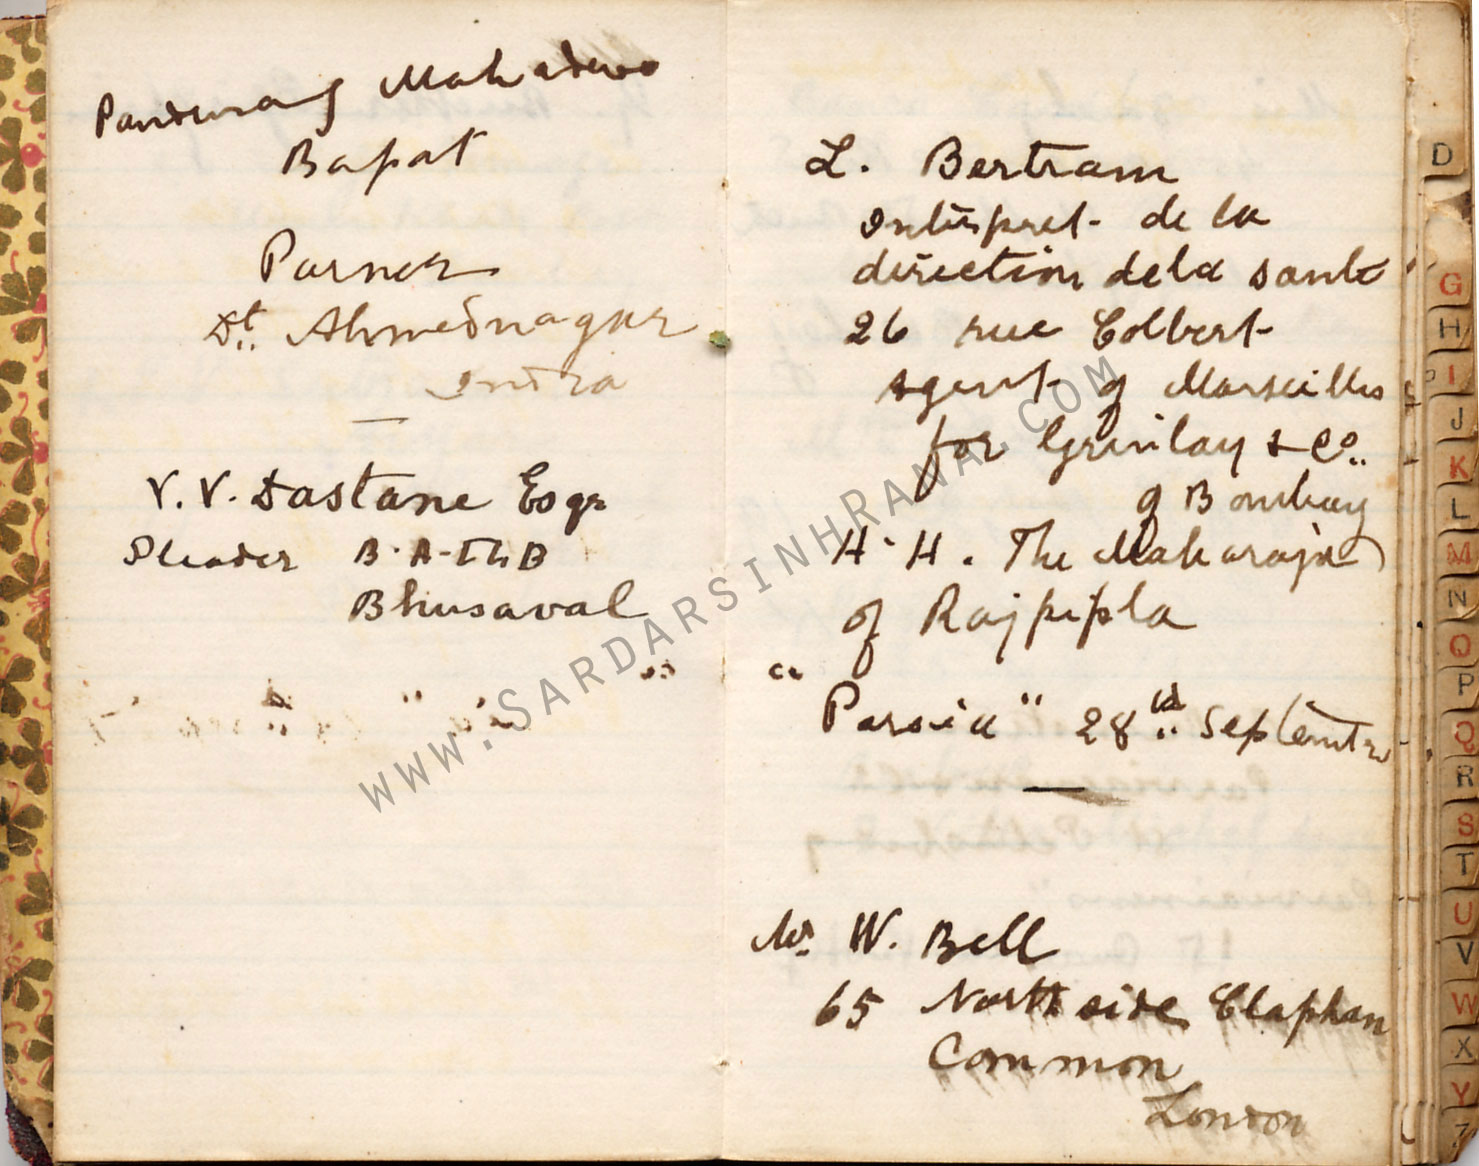 Pandurang Mahadeva
Bapat
Parner
Dt. Ahmednagar
India
V. V. Dastane Esqr
Pleader B.A-LLB
Bhusaval
L. Bertram
Interpret de la
direction de la santé
26 rue Colbert
agent of Marseilles
for Grinlay & Co.
of Bombay
H.H. The Maharaja
of Rajpipla
"Persia" 28th September
Mr W. Bell
65 North side Clapham
Common
London
WWW.SARDARSINHRANA.COM
D
G
H
I
J
K
L
M
N
O
P
Q
R
S
T
U
V
W
X
Y
Z